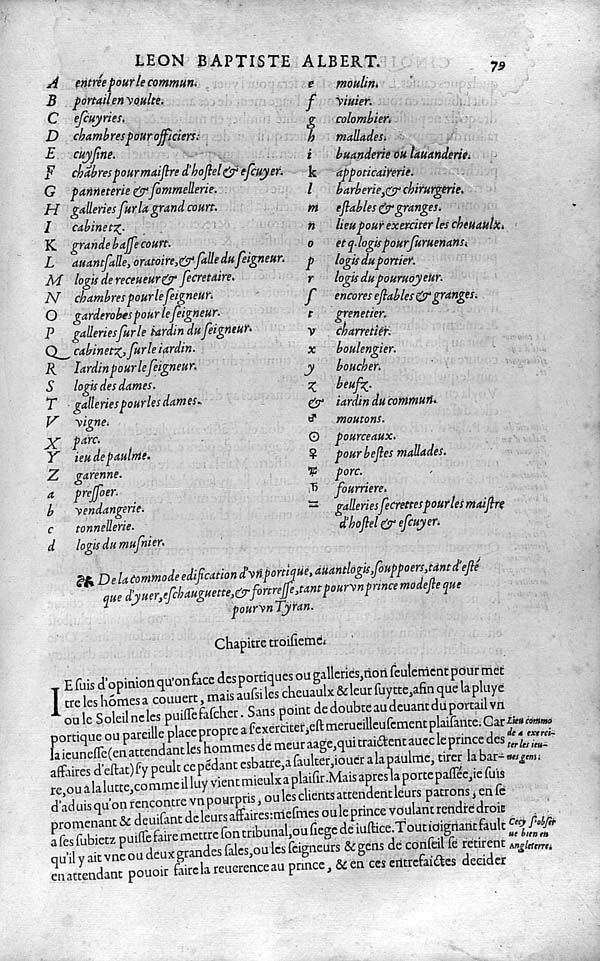 LEON BAPTISTE ALBERT. 79
A entrée pour le commun.
B portail en voulte.
C eſcuyries.
D chambres pour officiers.
E cuyſine.
F chãbres pour maiſtre d'hoſtel & eſcuyer.
G panneterie & ſommellerie.
H galleries ſur la grand court.
I cabinetz.
K grande baſſe court.
L auantſalle, oratoire, & ſalle du ſeigneur.
M logis de receueur & ſecretaire.
N chambres pour le ſeigneur.
O garderobes pour le ſeigneur.
P galleries ſur le iardin du ſeigneur.
Q cabinetz, ſur le iardin.
R Iardin pour le ſeigneur.
S logis des dames.
T galleries pour les dames.
V vigne.
X parc.
Y ieu de paulme.
Z garenne.
a preſſoer.
b vendangerie.
c tonnellerie.
d logis du muſnier.
e moulin.
f viuier.
g colombier.
h mallades.
i buanderie ou lauanderie.
k appoticairerie.
l barberie, & chirurgerie.
m eſtables & granges.
n lieu pour exerciter les cheuaulx.
o et q. logis pour ſuruenans.
p logis du portier.
r logis du pouruoyeur.
ſ encores eſtables & granges.
t grenetier.
v charretier.
x boulengier.
y boucher.
z beufz.
& iardin du commun.
♂ moutons.
☉ pourceaux.
♀ pour beſtes mallades.
porc.
♄ fourriere.
♒ galleries ſecrettes pour les maiſtre
d'hoſtel & eſcuyer.
De la commode edification d'vn portique, auantlogis, ſouppoers, tant d'eſté
que d'yuer, eſchauguette, & fortreſſe, tant pour vn prince modeſte que
pour vn Tyran.
Chapitre troiſieme.
IE ſuis d'opinion qu'on face des portiques ou galleries, non ſeulement pour met
tre les hómes a couuert, mais auſsi les cheuaulx & leur ſuytte, afin que la pluye
ou le Soleil ne les puiſſe faſcher. Sans point de doubte au deuant du portail vn
portique ou pareille place propre a ſ'exerciter, eſt merueilleuſement plaiſante. Car
la ieuneſſe (en attendant les hommes de meur aage, qui traićtent auec le prince des
affaires d'eſtat) ſ'y peult ce pẽdant esbatre, a ſaulter, iouer a la paulme, tirer la bar-
re, ou a la lutte, comme il luy vient mieulx a plaiſir. Mais apres la porte paſſée, ie ſuis
d'aduis qu'on rencontre vn pourpris, ou les clients attendent leurs patrons, en ſe
promenant & deuiſant de leurs affaires: meſmes ou le prince voulant rendre droit
a ſes ſubietz puiſſe faire mettre ſon tribunal, ou ſiege de iuſtice. Tout ioignant fault
qu'il y ait vne ou deux grandes ſales, ou les ſeigneurs & gens de conſeil ſe retirent
en attendant pouoir faire la reuerence au prince, & en ces entrefaićtes decider
Lieu commo
de a exerci-
ter les ieu-
nes gens.
Cecy ſ'obſer
ue bien en
Angleterre.